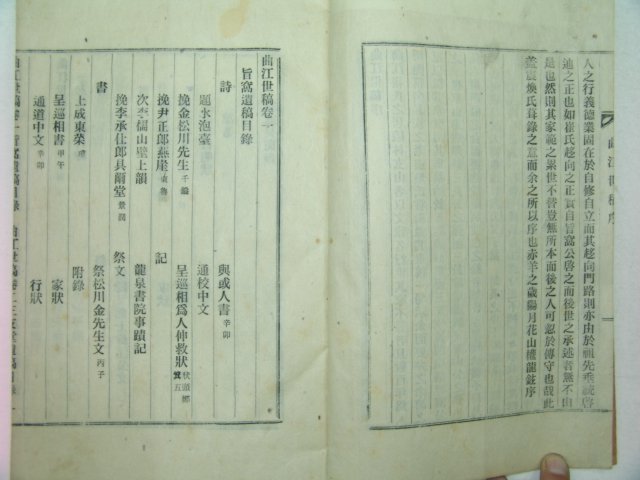 人之行義德業固在於自修自立而其趍向門路則亦由於祖先垂統啓
迪之正也如崔氏趍向之正實自旨窩公啓之而後世之承述者無不由
是也然則其家範之累世不替豈無所本而後之人可忽於傳守也哉此
蓋震煥氏聳錄之意而余之所以序也赤羊之歲陽月花山權龍鉉序
曲江世稿序
曲江世稿卷一
旨窩遺稿目錄
詩
題水泡臺
挽金松川先生 千鎰
挽尹正郎燕崖
次李儒山壁上韻
挽李承仕郎具爾堂 景潤
書
上成東榮
呈巡相書 甲午
通道中文 辛卯
與或人書 辛卯
通校中文
呈巡相爲人伸救狀
記
龍泉書院事蹟記
祭文
祭松川金先生文 丙子
附錄
家狀
行狀